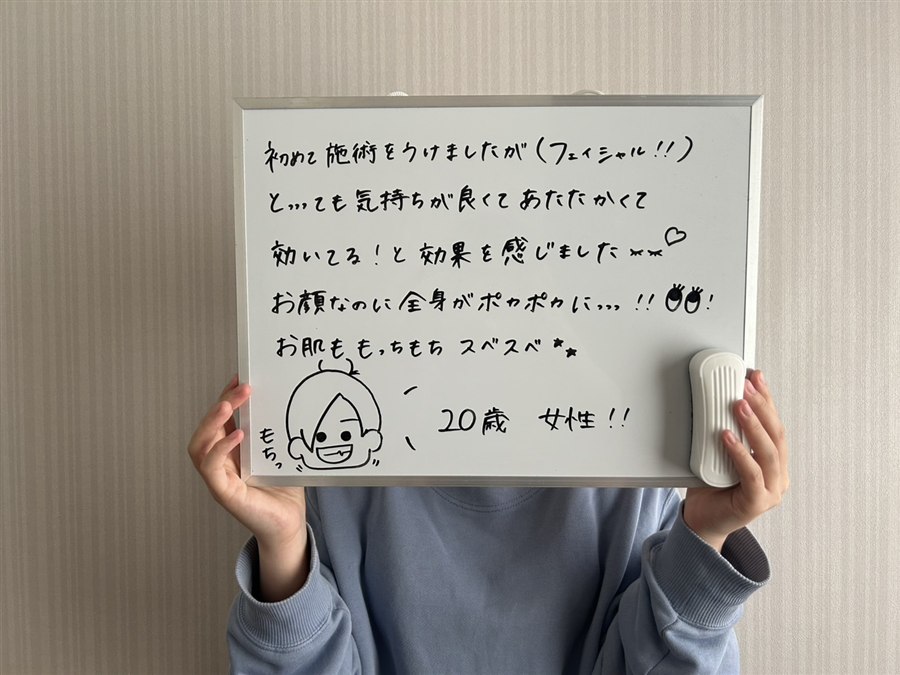 初めて施術をうけましたが(フェイシャル!!)
と,,,ても気持ちが良くてあたたかくて
効いてる!と効果を感じました♡
お顔なのに全身がポカポカに,,,!!!
お肌ももっちもちスベスベ
もちっ
20歳 女性!!